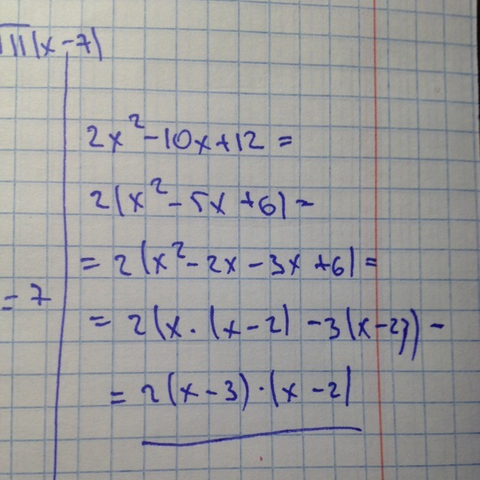 (x-7)
2x²-10x+12=
2(x²-5x+6)=
=2(x²-2x-3x+6)=
=7
=2(x·(x-2)-3(x-2))=
=2(x-3)·(x-2)